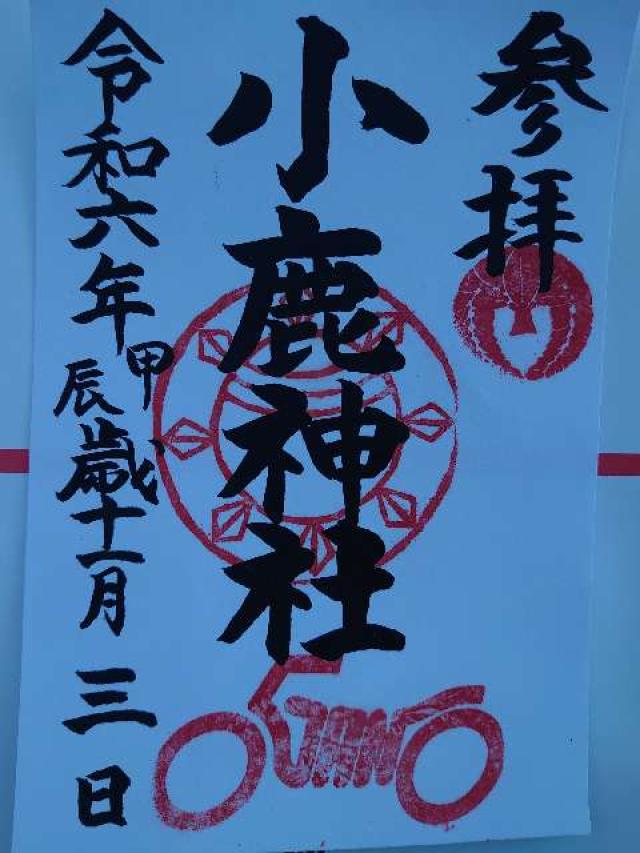 参拝
小鹿神社
令和六年甲辰歳十一月三日